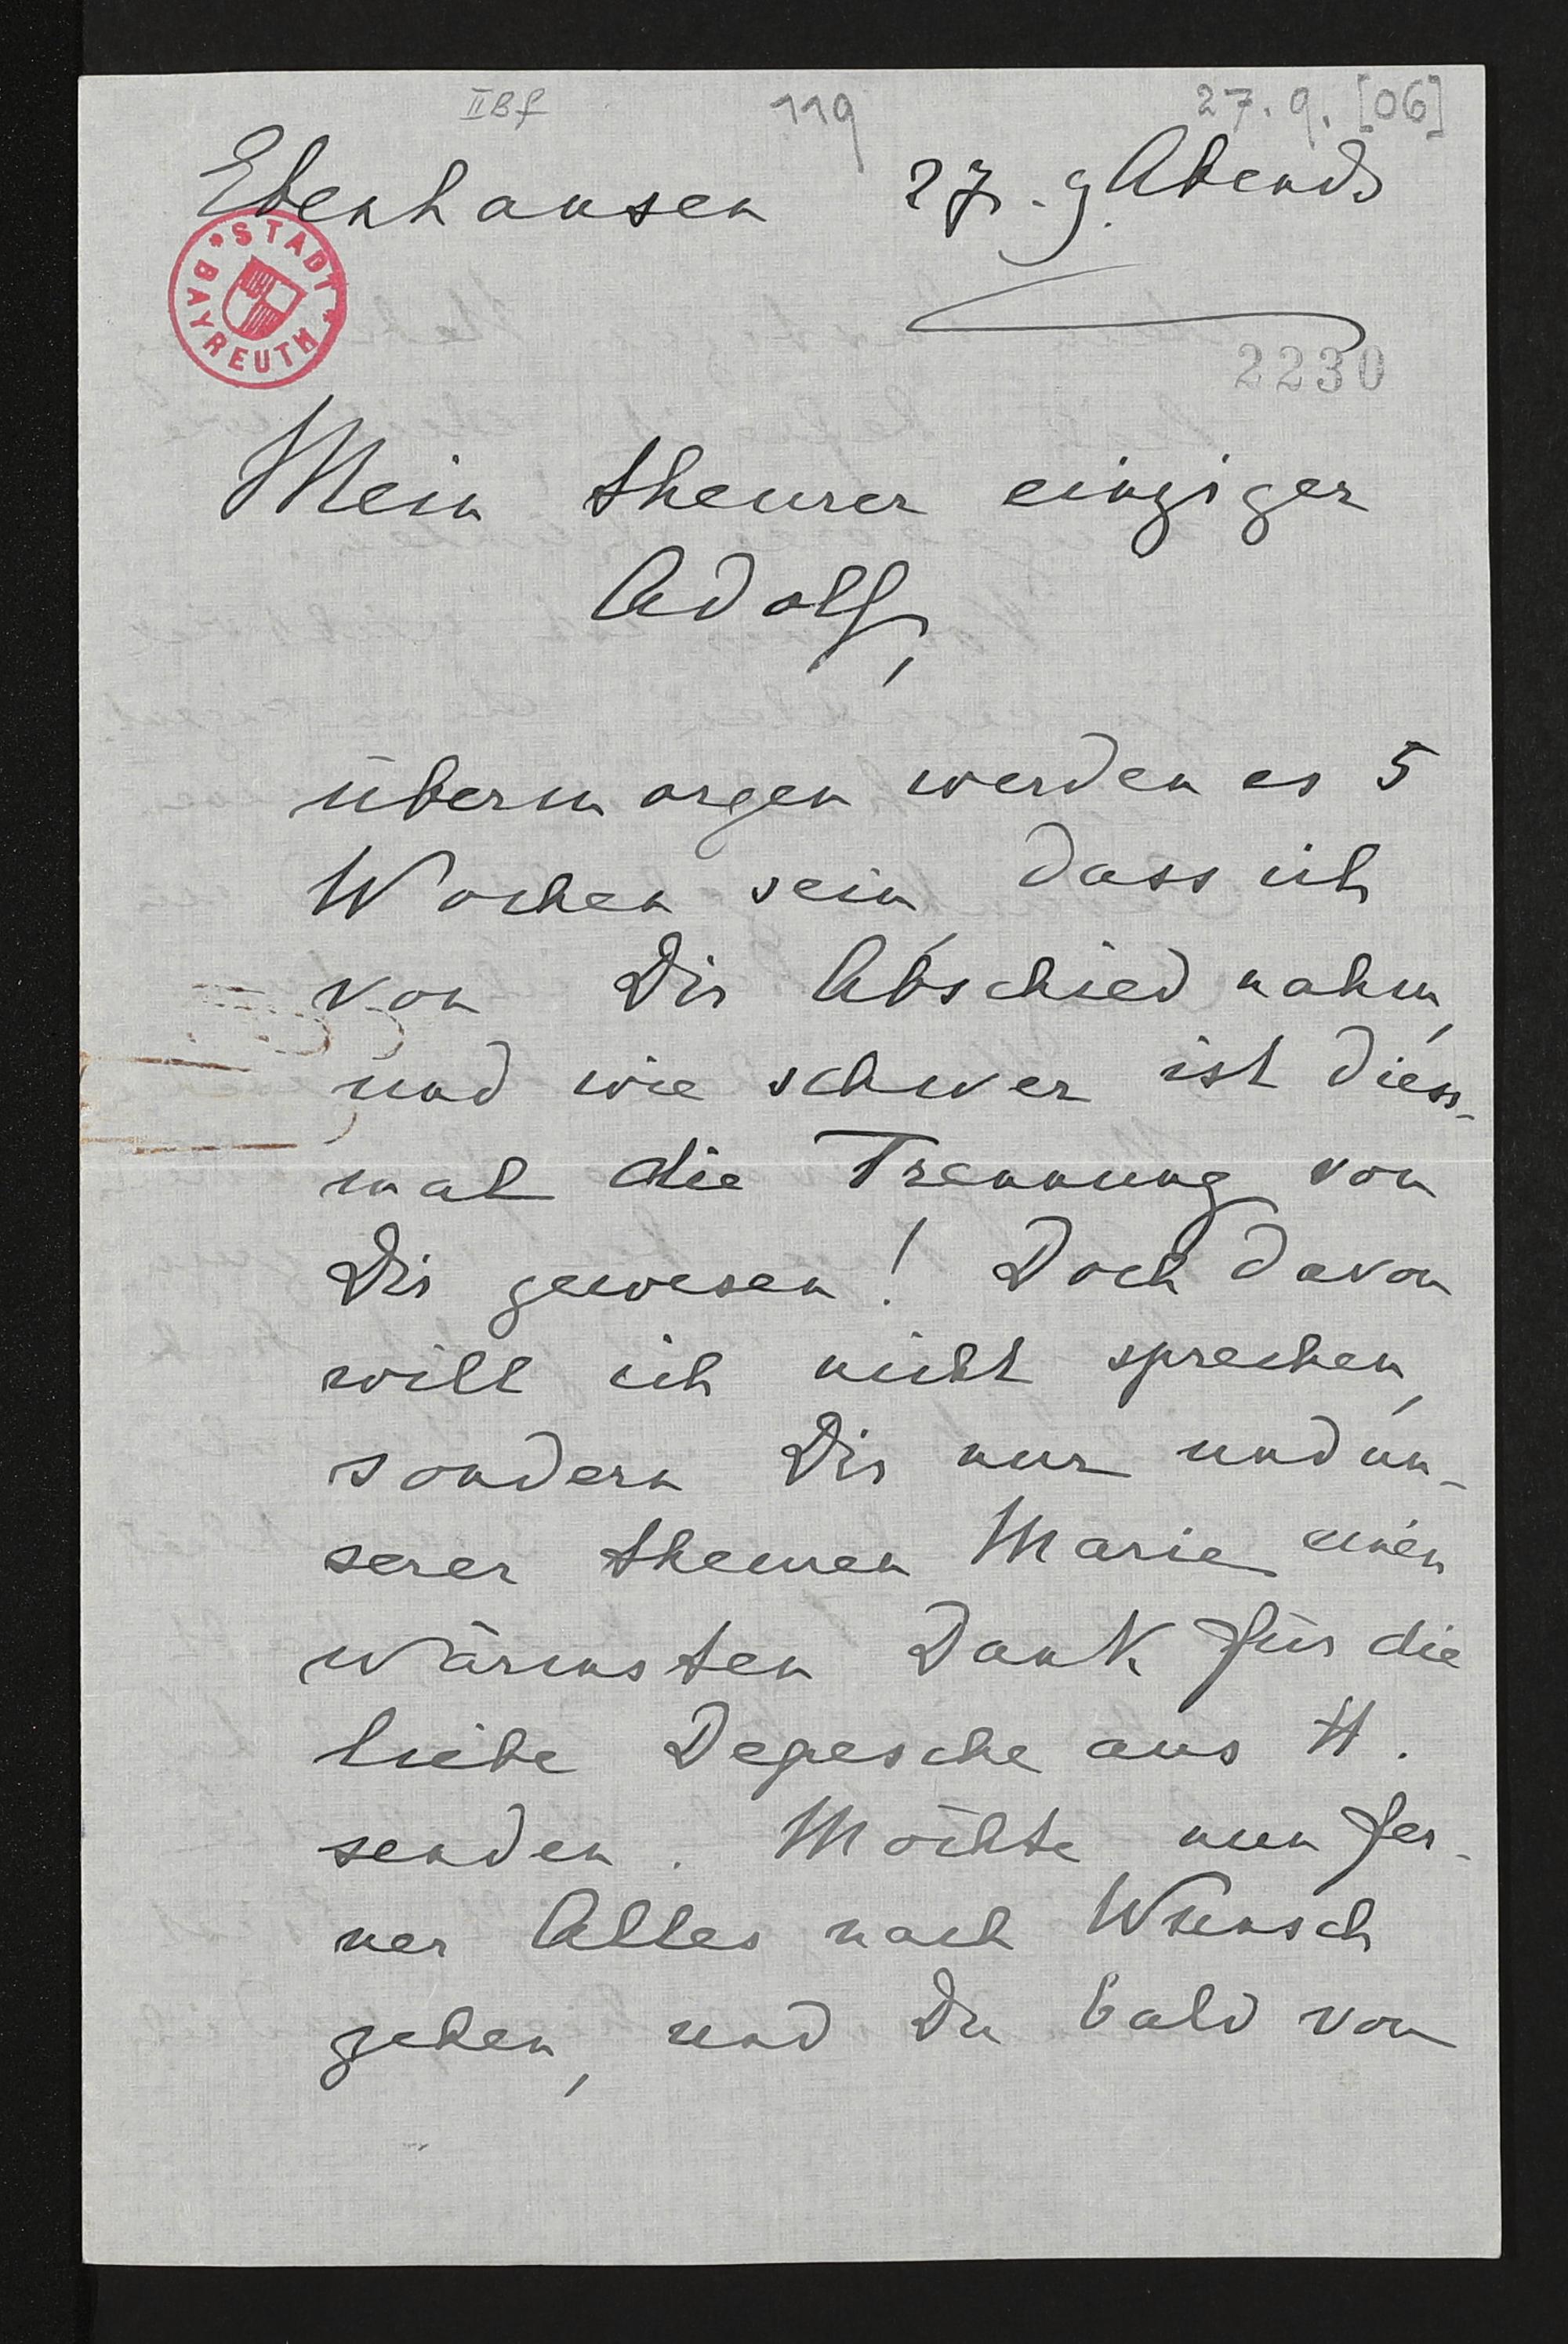 IIBf 119 27.9.[06]
Ebenhausen 27.9. Abends
* STADT * BAYREUTH
2230
Mein theurer einziger
Adolf,
übermorgen werden es 5
Wochen sein, dass ich
von Dir Abschied nahm,
und wie schwer ist diess-
mal die Trennung von
Dir gewesen! Doch davon
will ich nicht sprechen,
sondern Dir nur und un-
serer theuren Marie einen
wärmsten Dank für die
liebe Depesche aus H.
senden. Möchte nun fer-
ner Alles nach Wunsch
gehen, und Du bald von